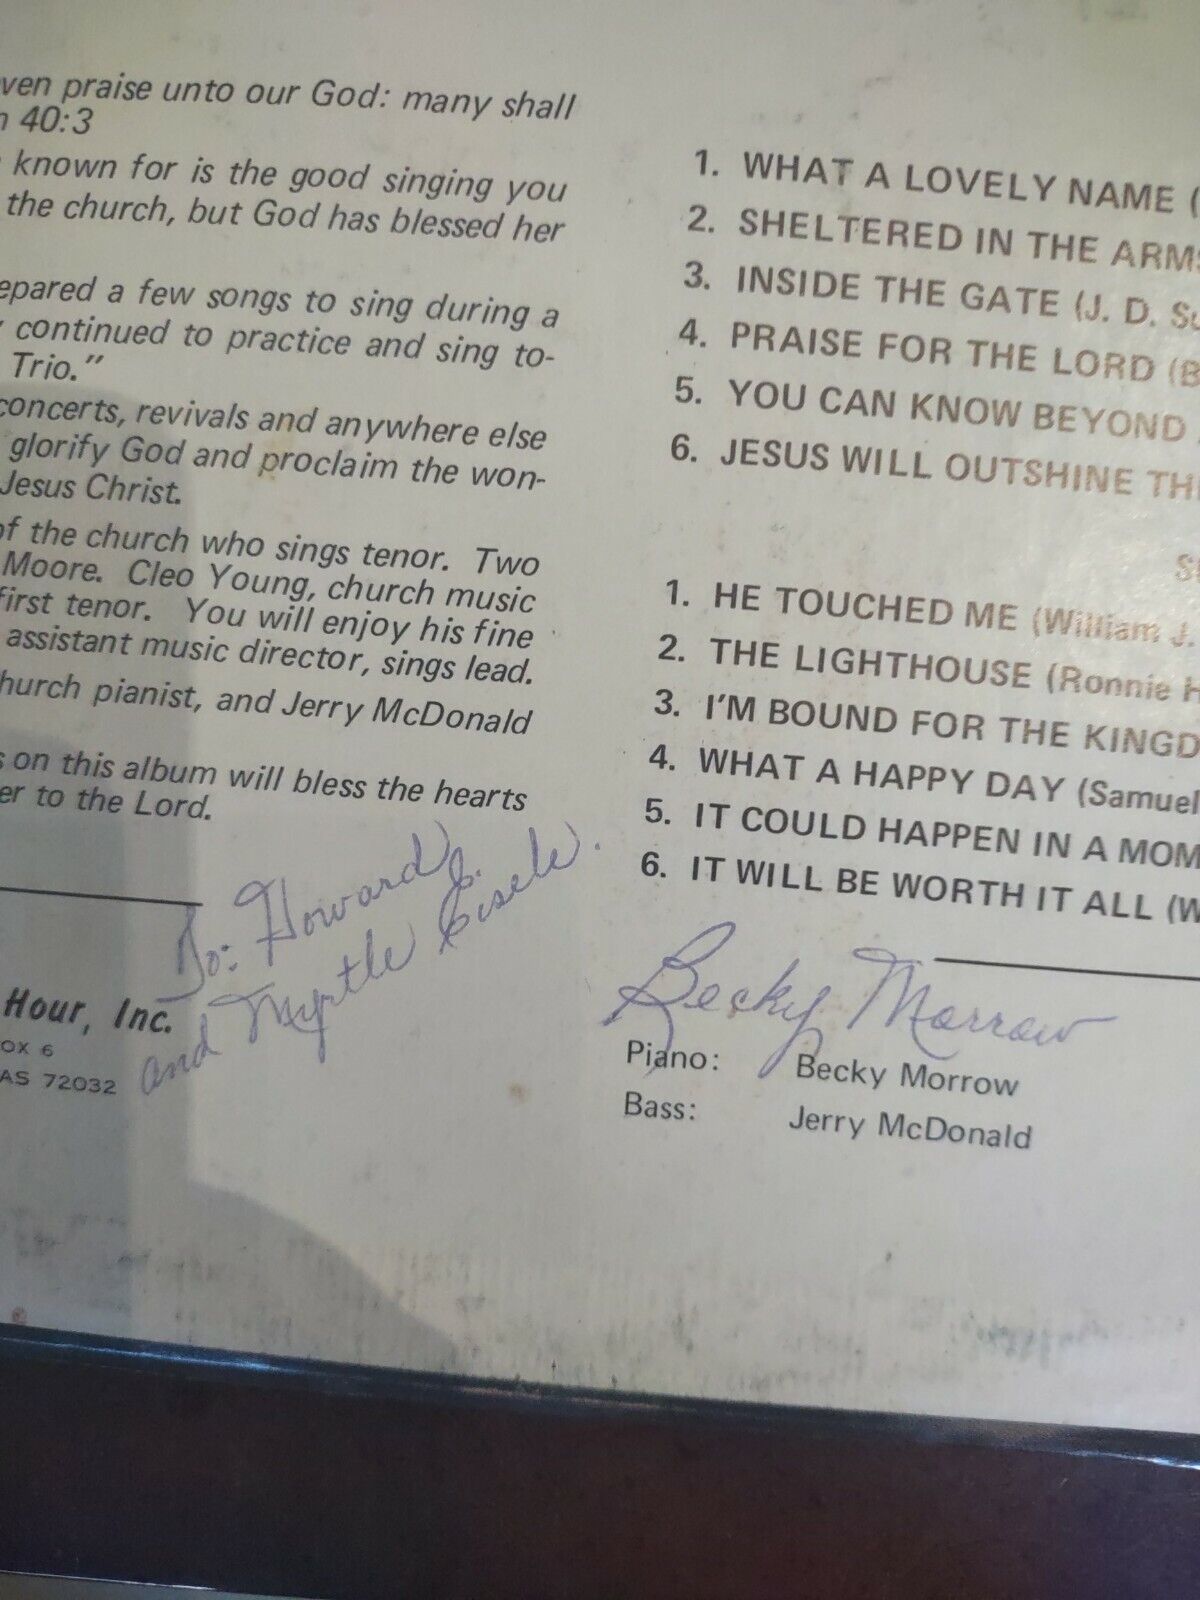 ven praise unto our God: many shall
40:3
known for is the good singing you
the church, but God has blessed her
epared a few songs to sing during a
continued to practice and sing to-
Trio."
concerts, revivals and anywhere else
glorify God and proclaim the won-
Jesus Christ.
of the church who sings tenor. Two
Moore. Cleo Young, church music
first tenor. You will enjoy his fine
assistant music director, sings lead.
hurch pianist, and Jerry McDonald
s on this album will bless the hearts
er to the Lord.
To: Howard
and Myrtle Eisele.
Hour, Inc.
OX 6
AS 72032
1. WHAT A LOVELY NAME (
2. SHELTERED IN THE ARMS
3. INSIDE THE GATE (J. D. Su
4. PRAISE FOR THE LORD (B
5. YOU CAN KNOW BEYOND
6. JESUS WILL OUTSHINE TH
1. HE TOUCHED ME (William J.
2. THE LIGHTHOUSE (Ronnie H
3. I'M BOUND FOR THE KINGD
4. WHAT A HAPPY DAY (Samuel
5. IT COULD HAPPEN IN A MOM
6. IT WILL BE WORTH IT ALL (W
Becky Morrow
Piano: Becky Morrow
Bass: Jerry McDonald